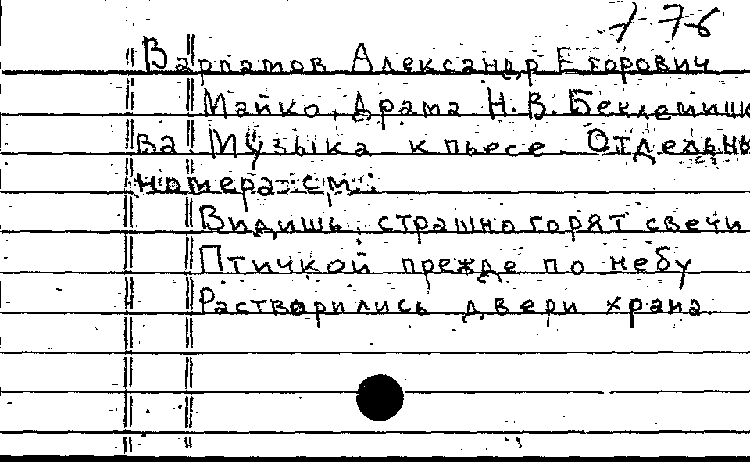 776
Варламов Александр Егорович
Майко, драма Н.В. Беклемише
ва Музыка к пьесе. Отдельны
номера см.:
Видишь, страшно горят свечи
Птичкой прежде по небу
Растворились двери храма